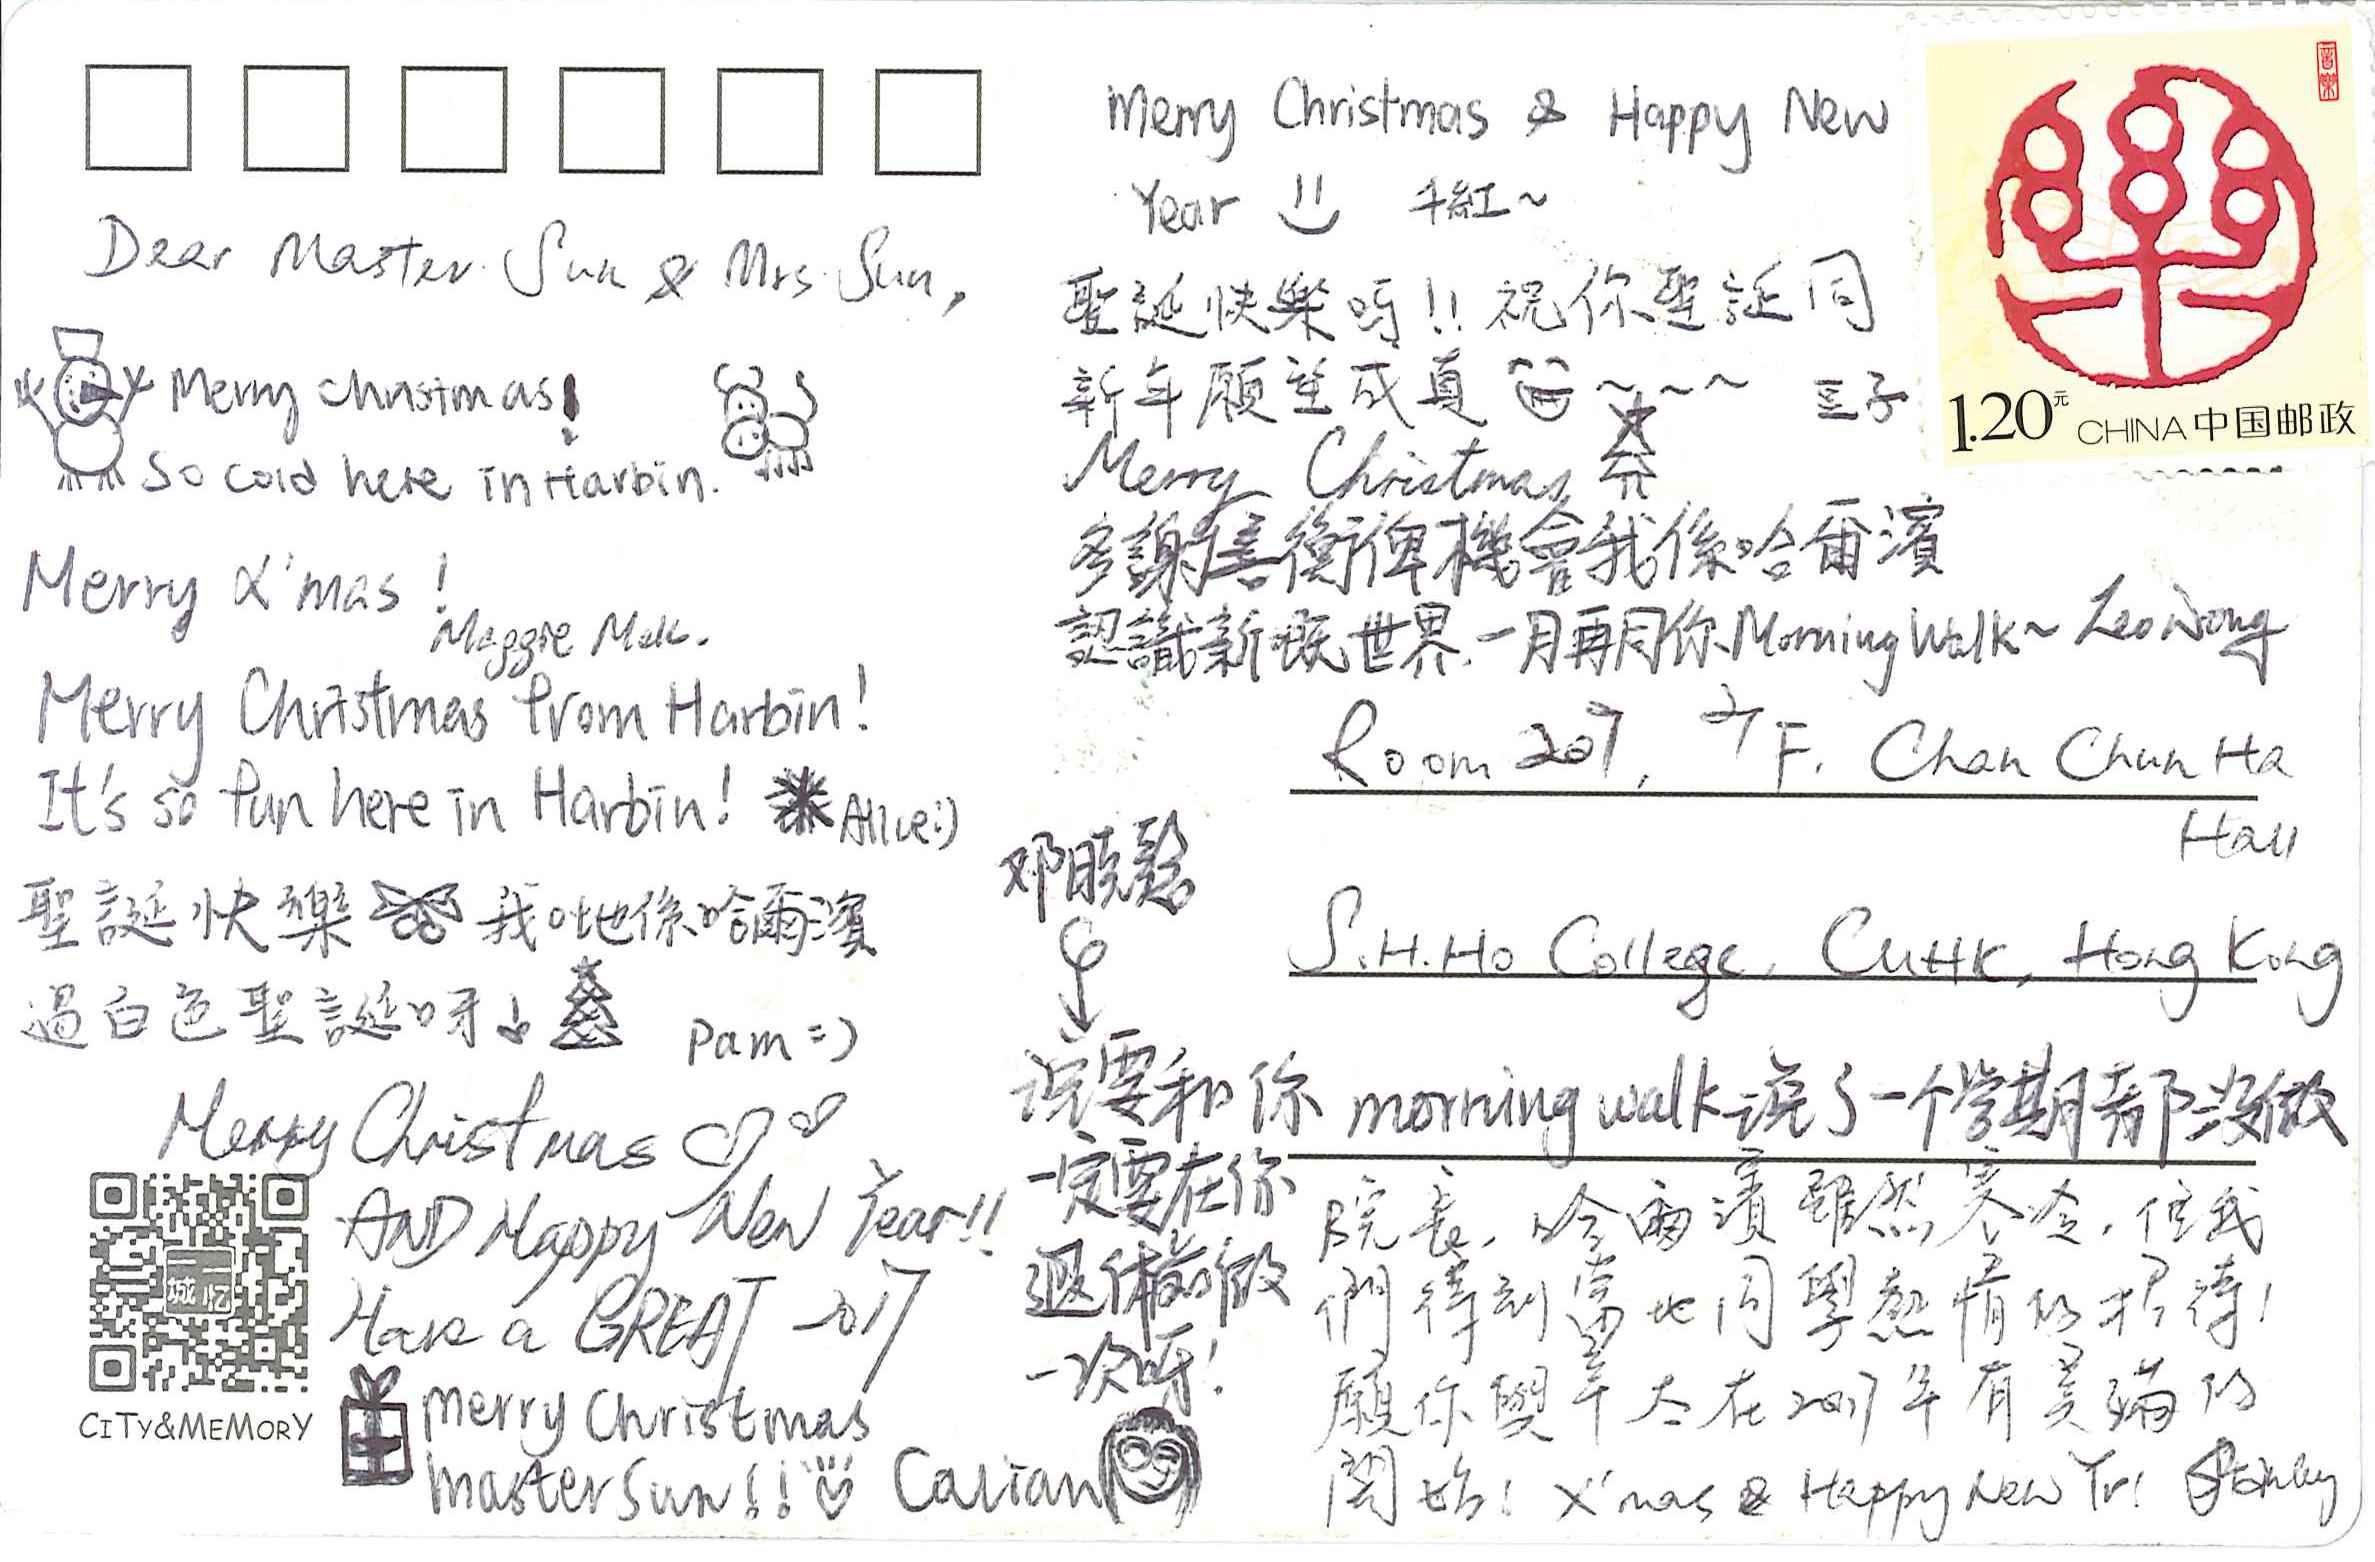 Dear Master Sun & Mrs. Sun,
Merry Christmas!
So cold here in Harbin.
Merry X'mas!
Maggie Mak.
Merry Christmas from Harbin!
It's so fun here in Harbin! Alice:)
聖誕快樂 我哋係哈爾濱
過白色聖誕呀
Pam =)
Merry Christmas
AND Happy New Year!!
Have a GREAT 2017
Merry Christmas
Master Sun!! Carian
城 忆
CITY&MEMORY
Merry Christmas & Happy New
Year 千紅~
聖誕快樂嗎!! 祝你聖誕同
新年願望成真 ~~~ 豆子
Merry Christmas
多謝善衡俾機會我係哈爾濱
認識新嘅世界.一月再同你Morning Walk~ Leo Wong
Room 207, 2/F. Chan Chun Ha
Hall
S.H.Ho College, CUHK, Hong Kong
邓晓
说要和你 morning walk 说了一个学期都没做
一定要在你
退休前做
一次呀!
院長, 哈爾濱雖然寒冷, 但我
們得到當地同學熱情的招待!
願你與辛太在2017年有美滿的
開始! X'mas & Happy New Yr! Stanley
音樂
1.20元 CHINA 中国邮政